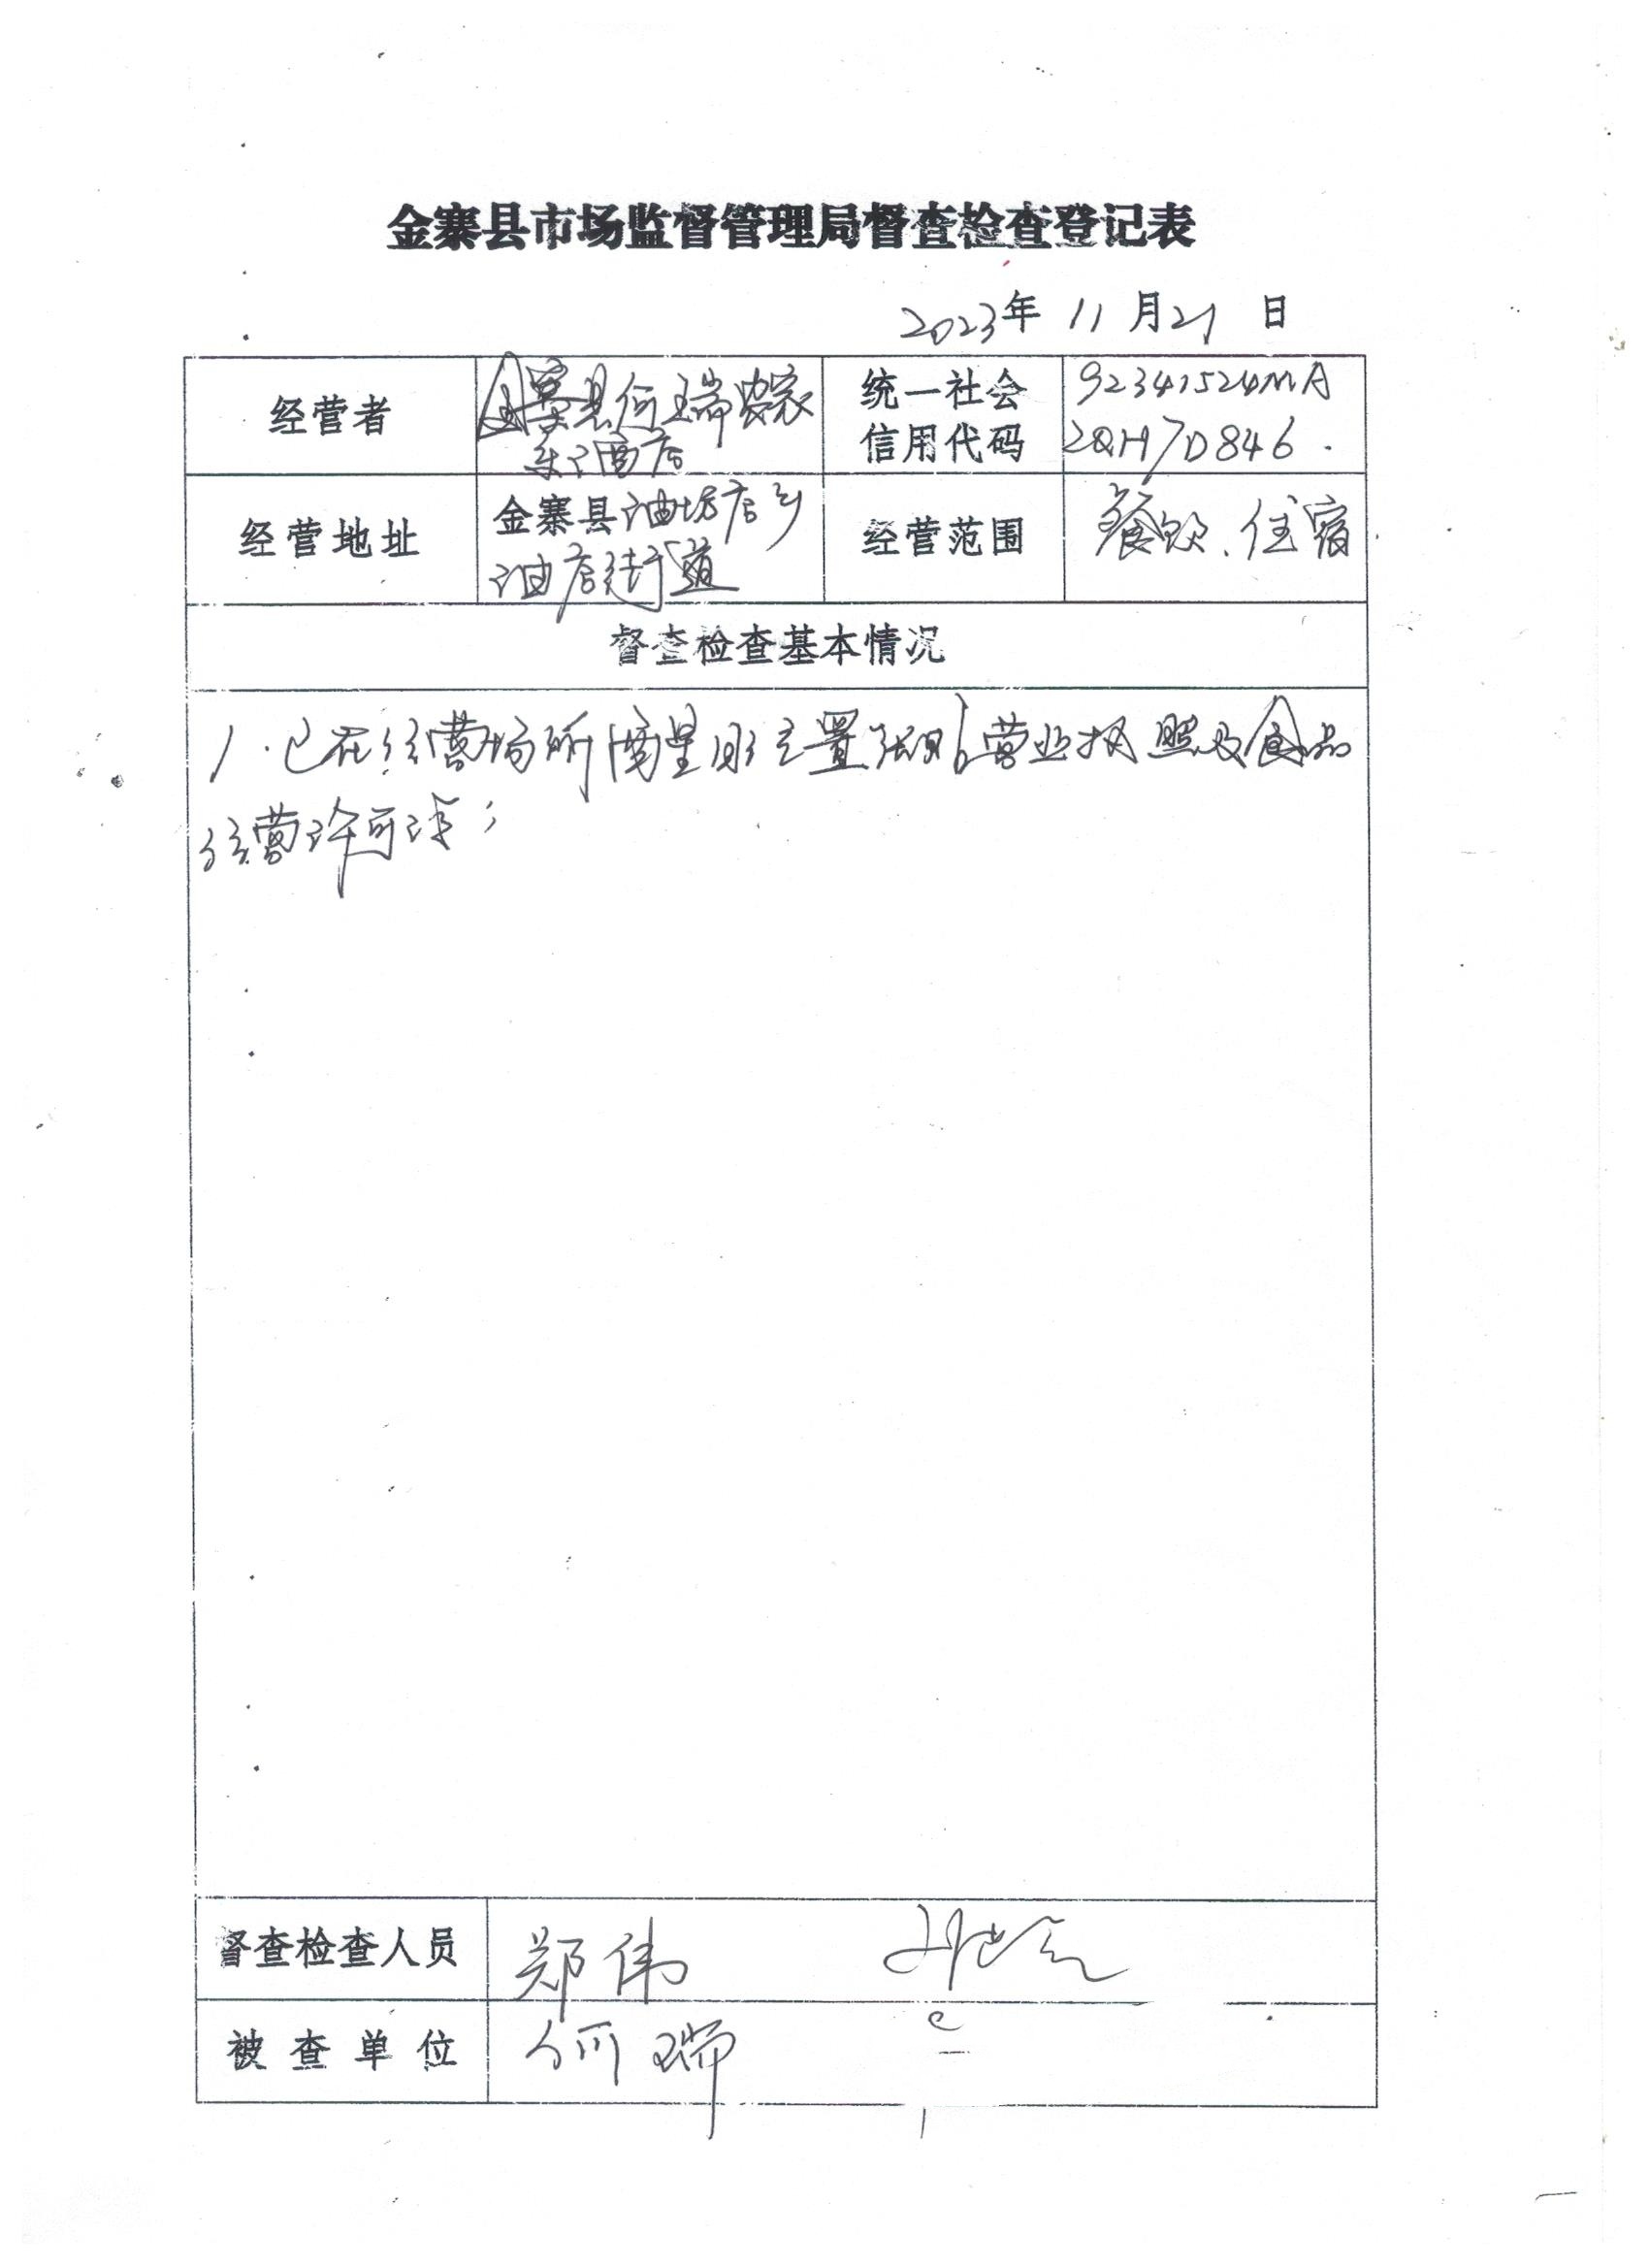 金寨县市场监督管理局督查检查登记表
2023年 11 月21 日
经营者
金寨县何瑞农家
乐酒店
统一社会
信用代码
92341524MA
2QH7D846.
经营地址
金寨县油坊店乡
油店街道
经营范围
餐饮、住宿
督查检查基本情况
1.已在经营场所醒目位置张贴营业执照及食品
经营许可证;
督查检查人员
郑伟
被查单位
何瑞